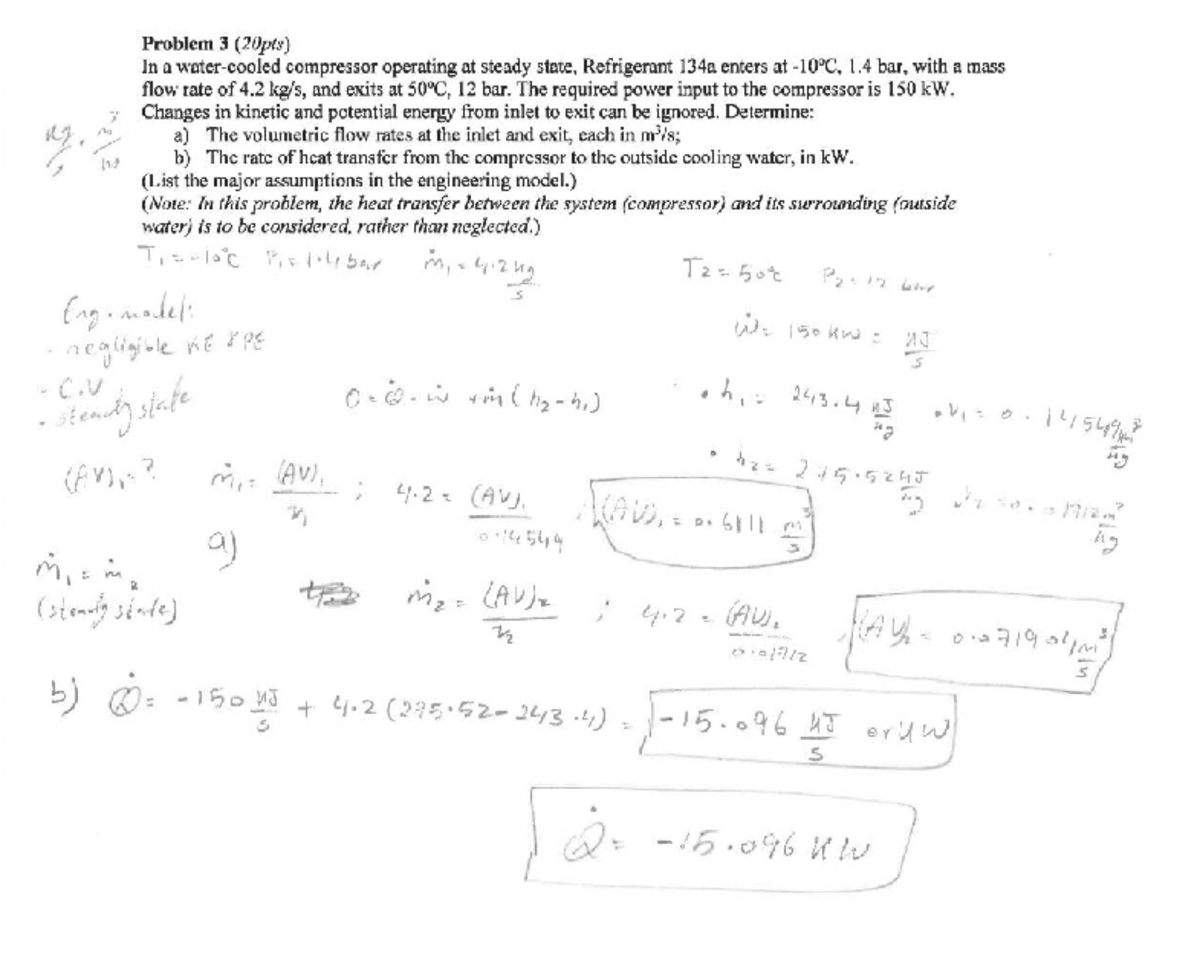 Problem 3 (20pts)
In a water-cooled compressor operating at steady state, Refrigerant 134a enters at -10°C, 1.4 bar, with a mass
flow rate of 4.2 kg/s, and exits at 50°C, 12 bar. The required power input to the compressor is 150 kW.
Changes in kinetic and potential energy from inlet to exit can be ignored. Determine:
a) The volumetric flow rates at the inlet and exit, each in m³/s;
b) The rate of heat transfer from the compressor to the outside cooling water, in kW.
(List the major assumptions in the engineering model.)
(Note: In this problem, the heat transfer between the system (compressor) and its surrounding (outside
water) is to be considered, rather than neglected.)
T₁ = -10°C P₁ = 1.4 bar ṁ₁ = 4.2 kg/s T2 = 50°C P₂ = 12 bar
Eng. model:
- negligible KE & PE
Ẇ = 150 kW = kJ/s
- C.V
- steady state
0 = Q̇ - ẇ + ṁ(h₂-h₁)
• h₁ = 243.4 kJ/kg • v₁ = 0.14549 m³/kg
• h₂ = 275.52 kJ/kg v₂ = 0.01712 m³/kg
(AV)₁ = ? ṁ₁ = (AV)₁/v₁ ; 4.2 = (AV)₁/0.14549 ; (AV)₁ = 0.6111 m³/s
a)
ṁ₁ = ṁ₂
(steady state)
ṁ₂ = (AV)₂/v₂ ; 4.2 = (AV)₂/0.01712 (AV)₂ = 0.071904 m³/s
b) Q̇ = -150 kJ/s + 4.2 (275.52 - 243.4) = -15.096 kJ/s or kW
Q̇ = -15.096 kW